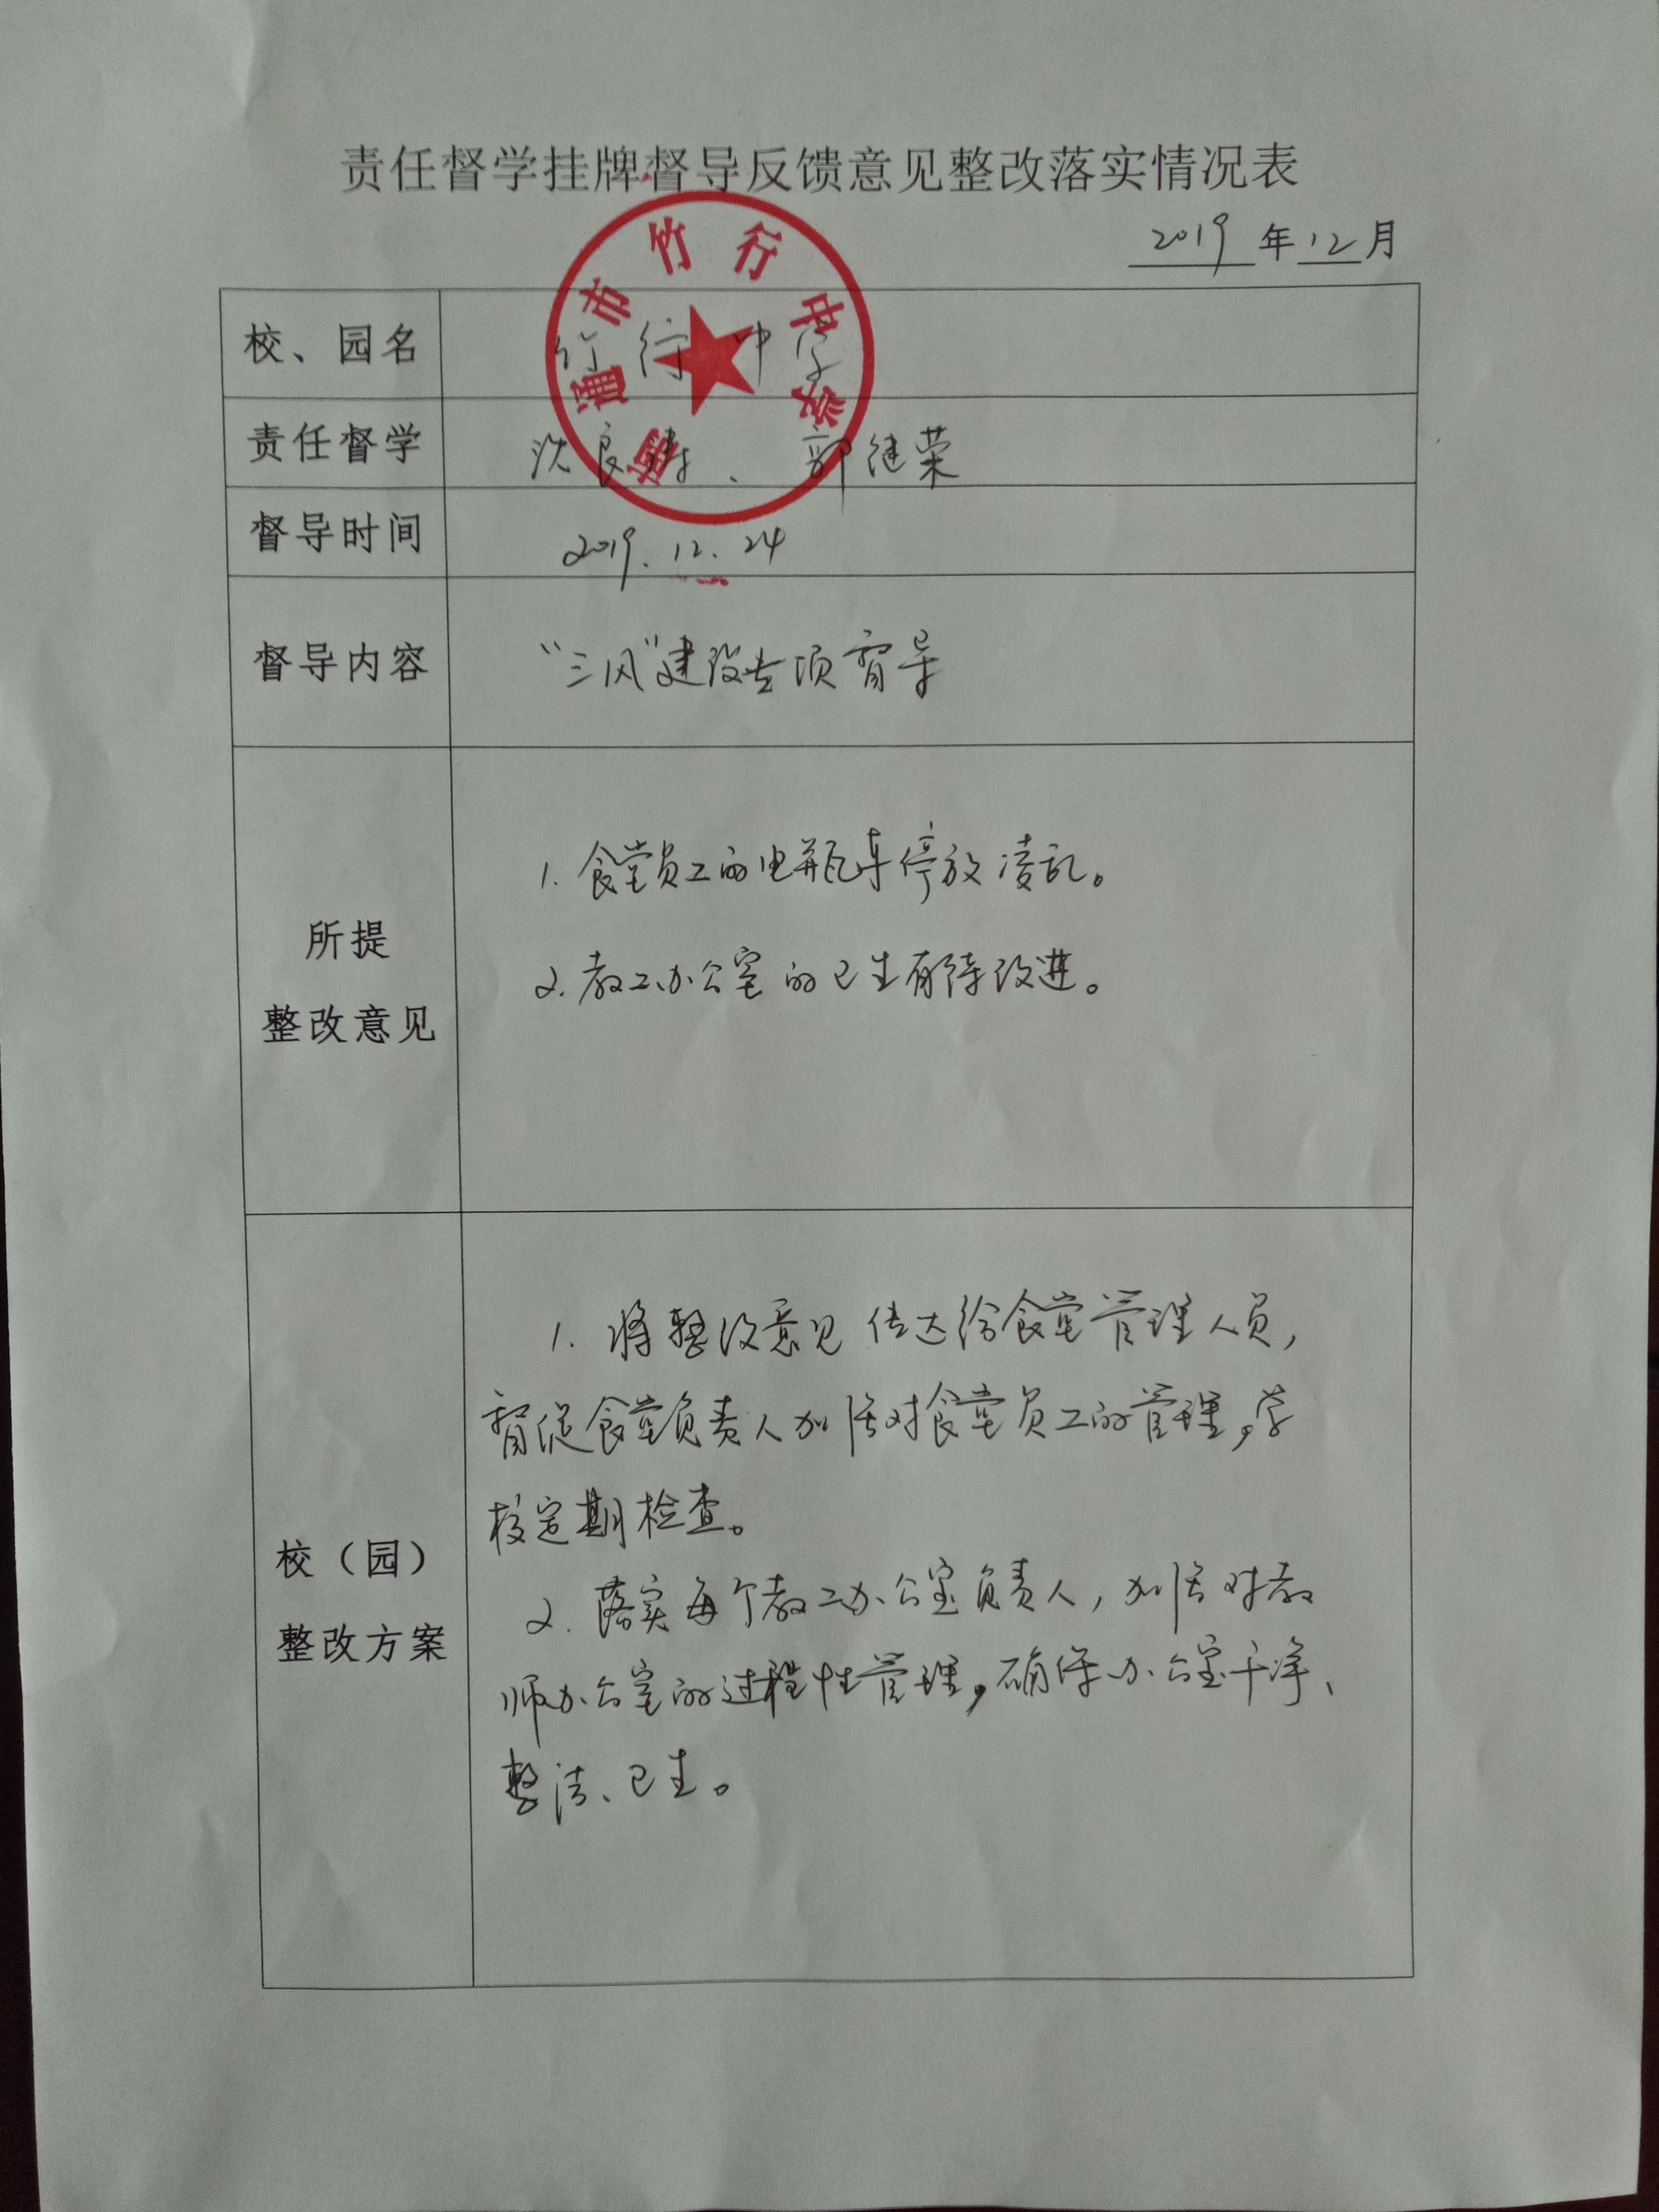 责任督学挂牌督导反馈意见整改落实情况表
2019 年 12 月
南通市竹行中学
校、园名 竹行中学
责任督学 沈良 、郭继荣
督导时间 2019.12.24
督导内容 “三风”建设专项督导
所提
整改意见
1. 食堂员工的电瓶车停放凌乱。
2. 教工办公室的卫生有待改进。
校（园）
整改方案
1. 将整改意见传达给食堂管理人员,
督促食堂负责人加强对食堂员工的管理,学
校定期检查。
2. 落实每个教工办公室负责人,加强对教
师办公室的过程性管理,确保办公室干净、
整洁、卫生。